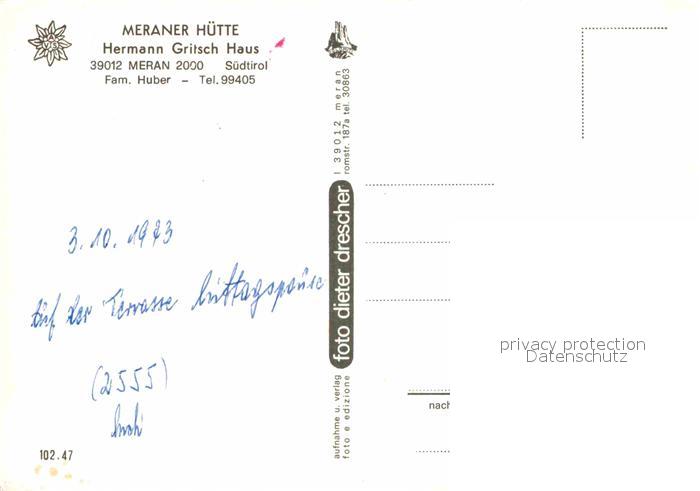 MERANER HÜTTE
Hermann Gritsch Haus
39012 MERAN 2000 Südtirol
Fam. Huber – Tel. 99405
3. 10. 1973
Auf der Terrasse Mittagspause
(2555)
102.47
I 39012 meran
romstr. 187a tel. 30863
foto dieter drescher
aufnahme u. verlag
foto e edizione
privacy protection
Datenschutz
nach